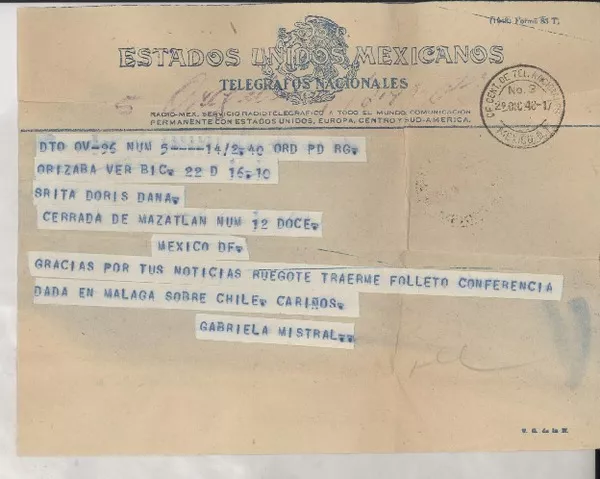 ESTADOS UNIDOS MEXICANOS
TELEGRAFOS NACIONALES
RADIO-MEX. SERVICIO RADIOTELEGRAFICO A TODO EL MUNDO. COMUNICACION
PERMANENTE CON ESTADOS UNIDOS, EUROPA, CENTRO Y SUD-AMERICA.
No. 3
MEXICO, D.F.
DTO OV-96 NUM 5----14/2.40 ORD PD RG.
ORIZABA VER BIC. 22 D 16.10
SRITA DORIS DANA.
CERRADA DE MAZATLAN NUM 12 DOCE.
MEXICO DF.
GRACIAS POR TUS NOTICIAS RUEGOTE TRAERME FOLLETO CONFERENCIA
DADA EN MALAGA SOBRE CHILE. CARIÑOS.
GABRIELA MISTRAL..